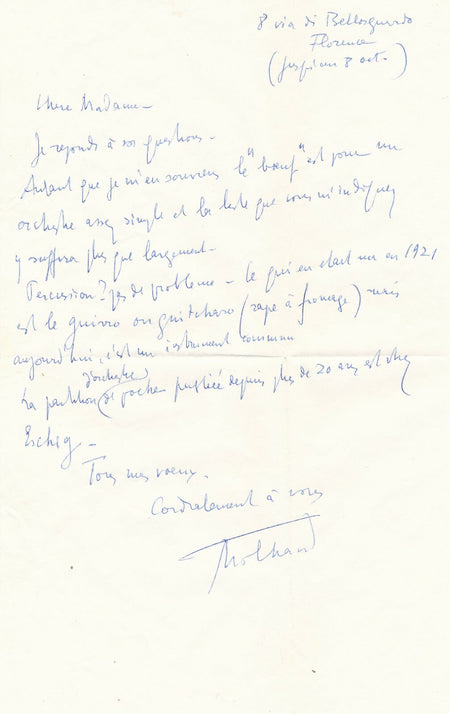 8 via di Bellosguardo
Florence
(jusqu'au 8 oct.)
Chère Madame -
Je réponds à vos questions -
Autant que je m'en souviens le "bœuf" est pour un
orchestre assez simple et la liste que vous m'indiquez
y suffira plus que largement -
Percussion? pas de problème - le qui en était un en 1921
est le guirro ou guitcharo (rape à fromage) mais
aujourd'hui, c'est un instrument commun
La partition d'orchestre (de poche) publiée depuis plus de 20 ans est chez
Eschig -
Tous mes vœux -
Cordialement à vous
Milhaud